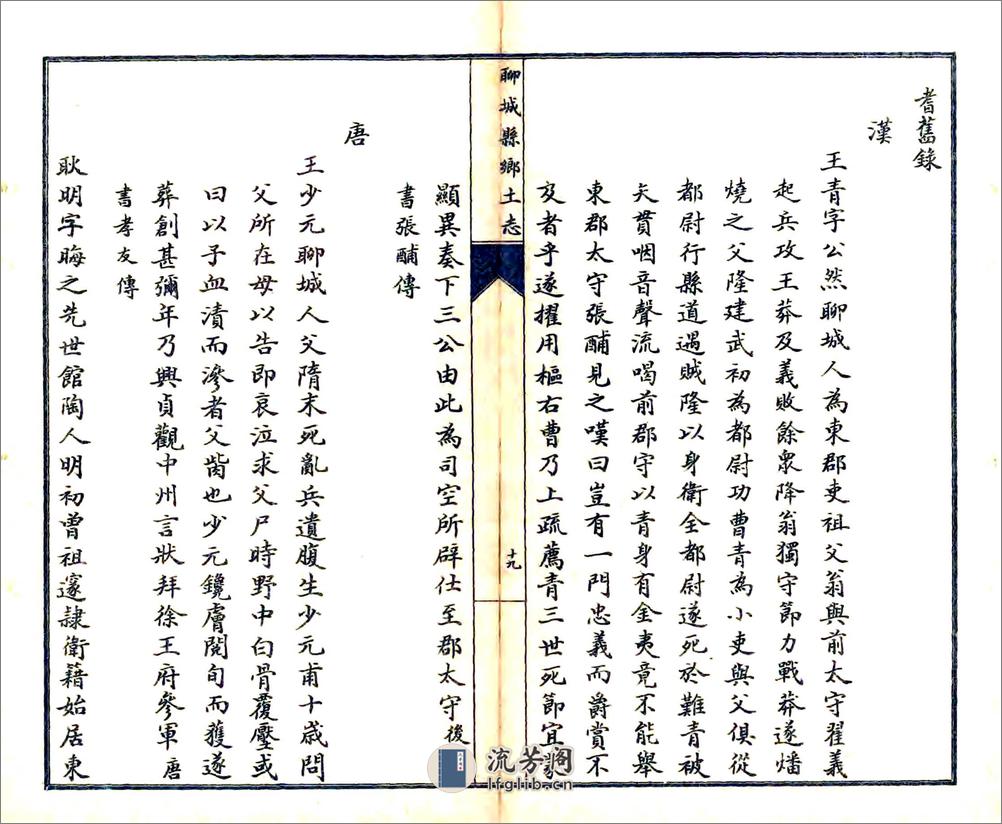 耆舊錄
漢
王青字公然聊城人為東郡吏祖父翁與前太守翟義
起兵攻王莽及義敗餘衆降翁獨守節力戰莽遂燔
燒之父隆建武初為都尉功曹青為小吏與父俱從
都尉行縣道遇賊隆以身衛全都尉遂死於難青被
矢貫咽音聲流喝前郡守以青身有金夷竟不能舉
東郡太守張酺見之嘆曰豈有一門忠義而爵賞不
及者乎遂擢用樞右曹乃上疏薦青三世死節宜蒙
聊城縣鄉土志
十九
顯異奏下三公由此為司空所辟仕至郡太守後
書張酺傳
唐
王少元聊城人父隋末死亂兵遺腹生少元甫十歲問
父所在母以告即哀泣求父尸時野中白骨覆壓或
曰以子血漬而滲者父胔也少元鑱膚閱旬而獲遂
葬創甚彌年乃興貞觀中州言狀拜徐王府參軍唐
書孝友傳
耿明字晦之先世館陶人明初曾祖邃隷衛籍始居東
流芳閣
lfglib.cn